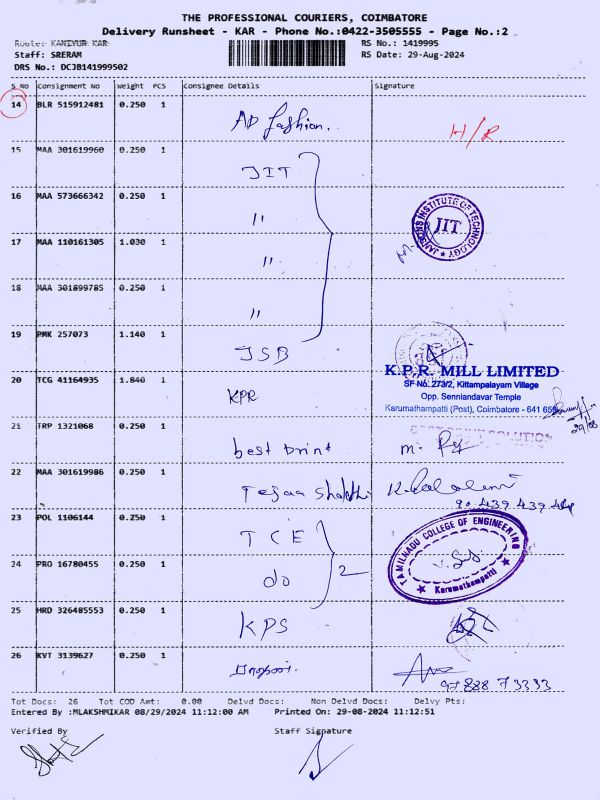 THE PROFESSIONAL COURIERS, COIMBATORE
Delivery Runsheet - KAR - Phone No.:0422-3505555 - Page No.:2
Route: KANIYUR KAR RS No.: 1419995
Staff: SRERAM RS Date: 29-Aug-2024
DRS No.: DCJB141999502
S No Consignment No Weight PCS Consignee Details Signature
14 BLR 515912481 0.250 1 AD fashion.. H/R
15 MAA 301619960 0.250 1 JIT
16 MAA 573666342 0.250 1 "
JANSONS INSTITUTE OF TECHNOLOGY
JIT
17 MAA 110161305 1.030 1 "
18 MAA 301899785 0.250 1 "
19 PMK 257073 1.140 1 JSB
K.P.R. MILL LIMITED
SF No. 273/2, Kittampalayam Village
20 TCG 41164935 1.840 1 KPR
Opp. Senniandavar Temple
Karumathampatti (Post), Coimbatore - 641 659
29/08
21 TRP 1321068 0.250 1 best print
SOLUTION
22 MAA 301619986 0.250 1 Tejaa Shakthi
90 439 439
23 POL 1106144 0.250 1 TCE
TAMILNADU COLLEGE OF ENGINEERING
Karumathampatti
24 PRO 16780455 0.250 1 do 2
25 HRD 326485553 0.250 1 KPS
26 KVT 3139627 0.250 1
97888 73333
Tot Docs: 26 Tot COD Amt: 0.00 Delvd Docs: Non Delvd Docs: Delvy Pts:
Entered By :MLAKSHMIKAR 08/29/2024 11:12:00 AM Printed On: 29-08-2024 11:12:51
Verified By Staff Signature